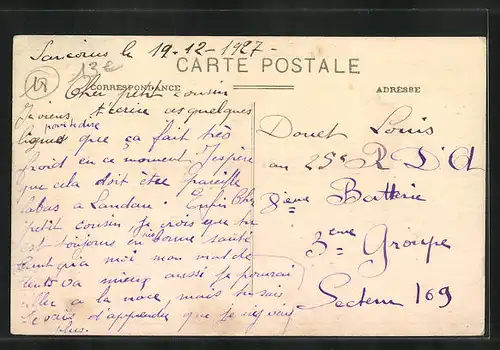 Sancoins le 19-12-1927-
13€
CARTE POSTALE
CORRESPONDANCE
ADRESSE
Cher petit cousin
Je viens t'écrire ces quelques
lignes pour te dire que ça fait très
froid en ce moment. J'espère
que cela doit être pareille
labas a Landau. Enfin Cher
petit cousin, je crois que tu
est toujours en bonne santé
tant qu'a moi mon mal de
tente va mieux aussi je pourai
aller a la noce, mais tu sais
d'apprendre que je
plus.
Douet Louis
au 25e R D'A
8ième Batterie
3eme Groupe
Secteur 169